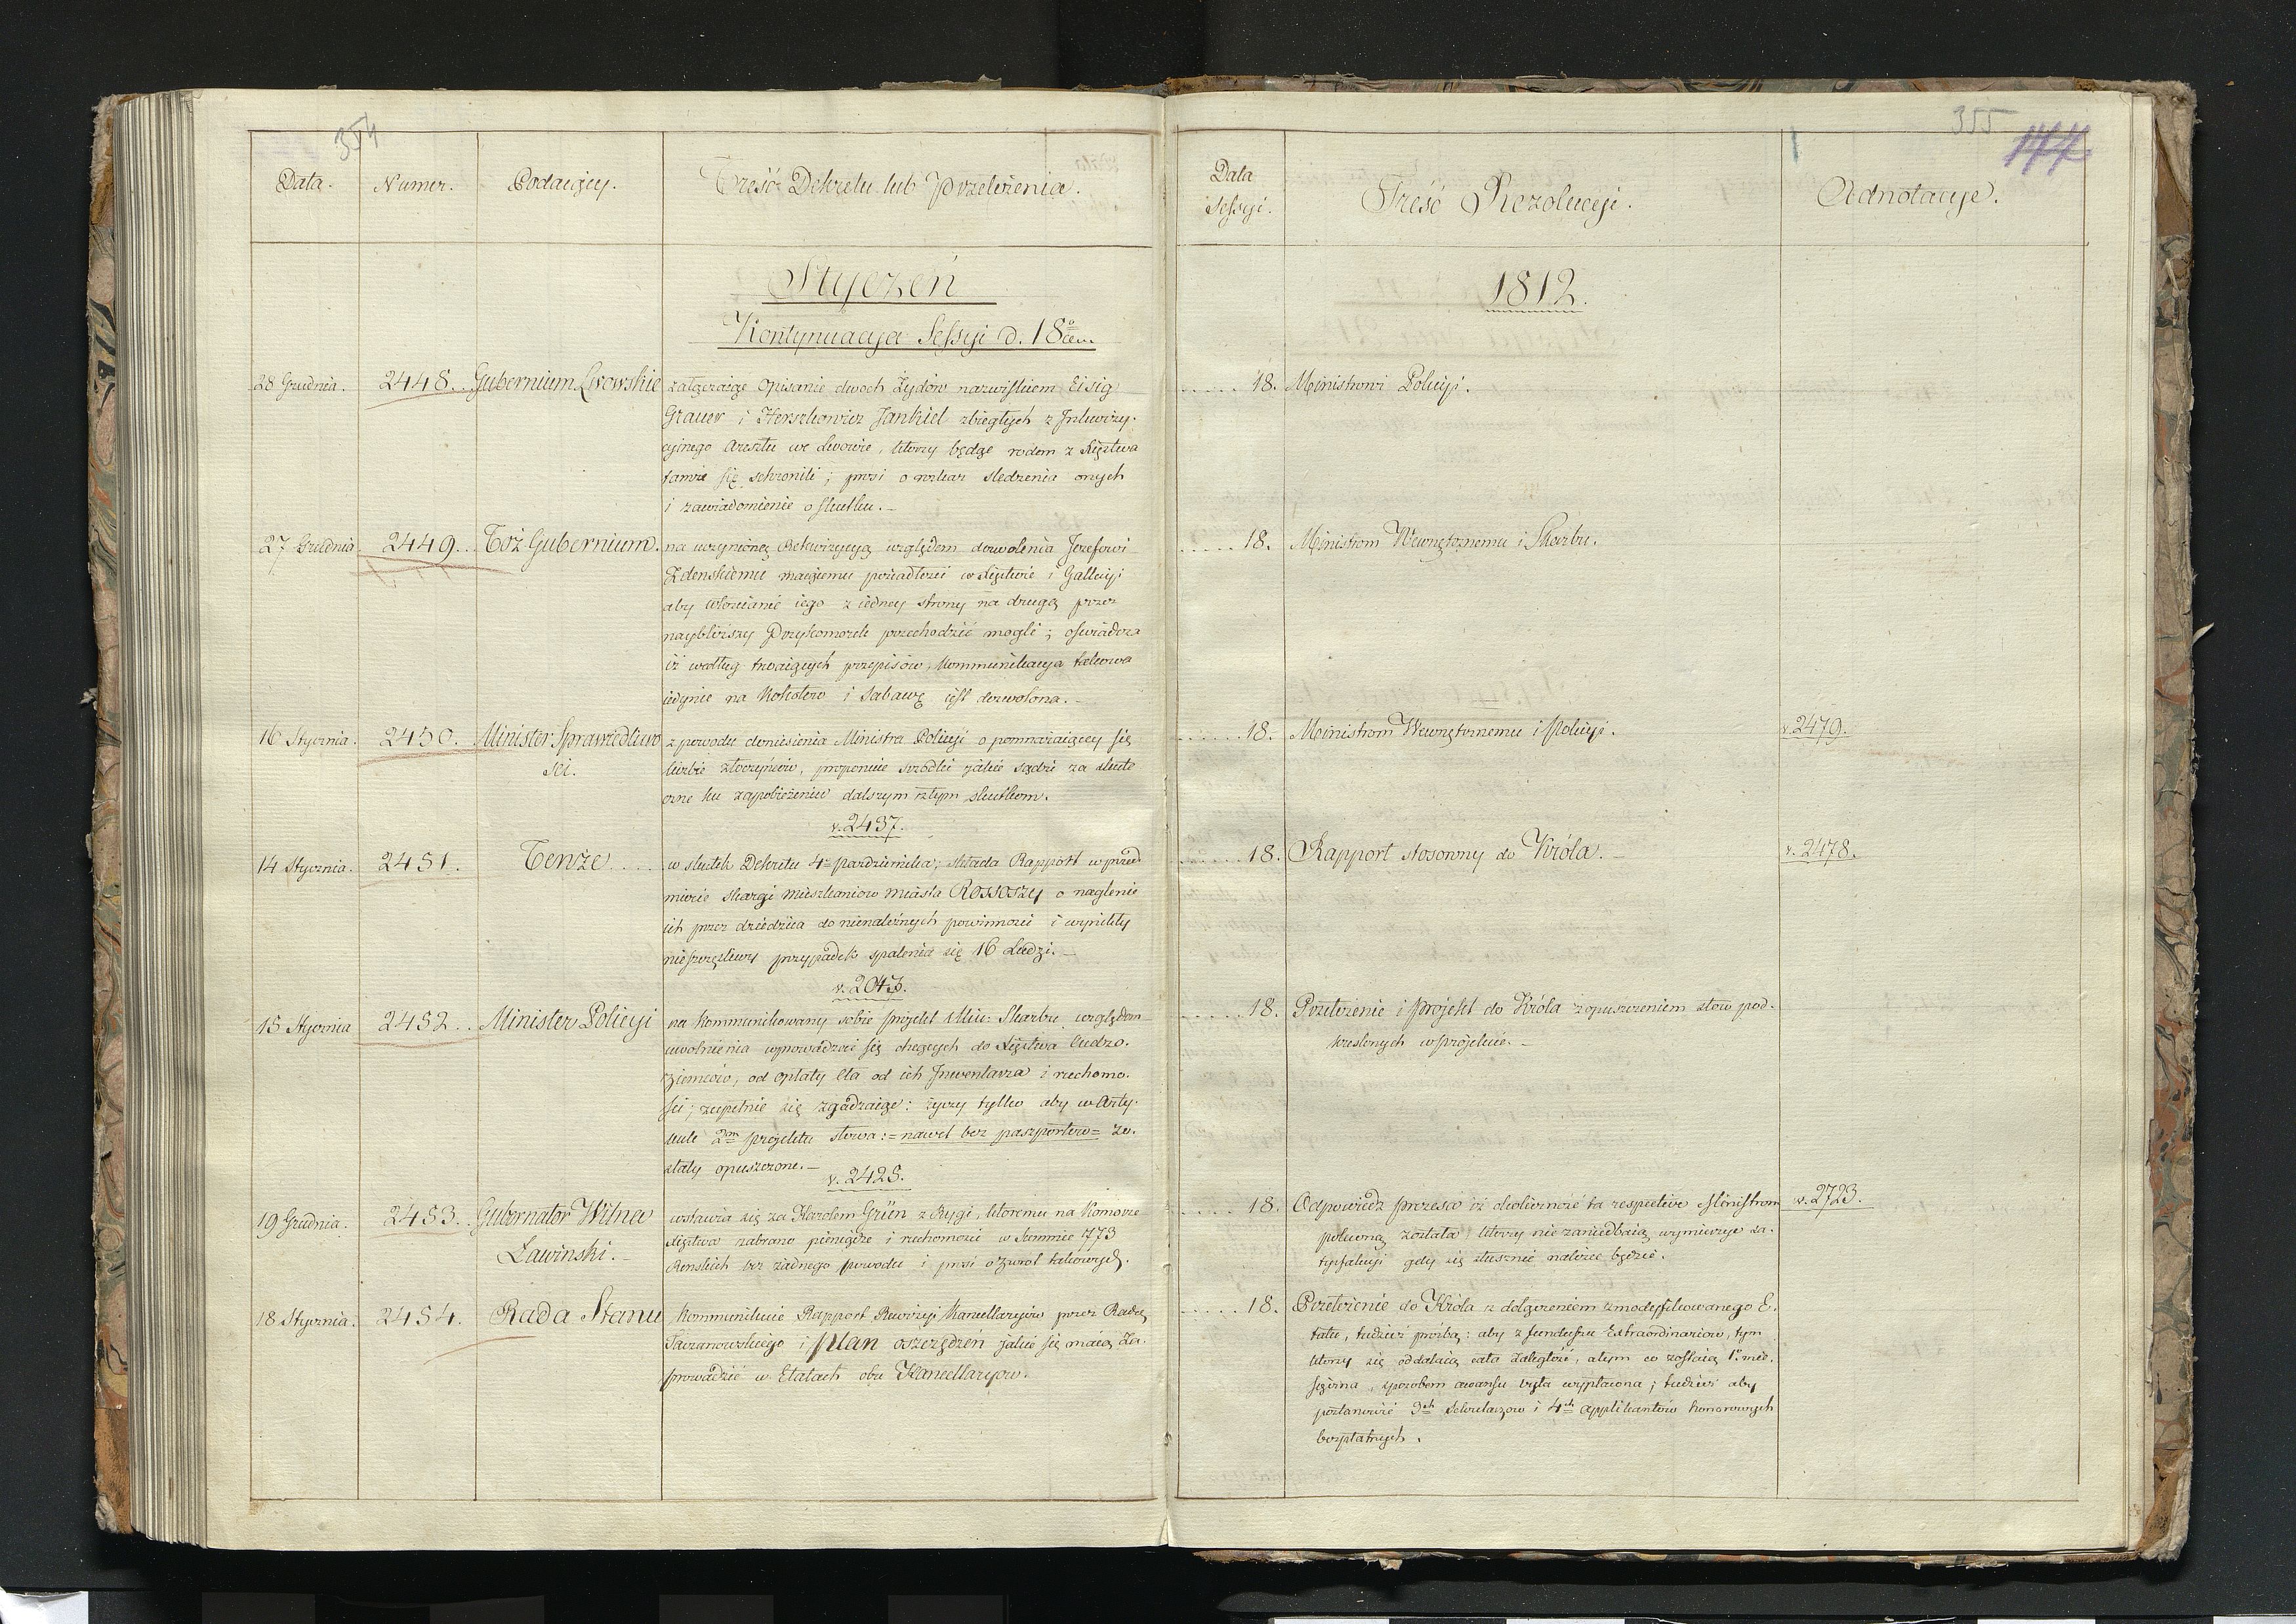 354
Data.
Numer.
Podaiący.
Treść Dekretu lub Przełożenia.
Styczeń
Kontynuacya Sessyi d. 18º
28 Grudnia.
2448.
Gubernium Lwowskie
załączaiąc Opisanie dwoch Żydów nazwiskiem Eisig
Grauer i Herszkowicz Jankiel zbiegłych z Inkwizy-
cyinego Aresztu we Lwowie, którzy będąc rodem z Xięztwa
tamże się schronili; prosi o rozkaz śledzenia onych
i zawiadomienie o skutku.
27 Grudnia
2449.
Toż Gubernium.
na uczynioną Rekwizycyą względem dozwolenia Jozefowi
Zdenskiemu maiącemu posiadłości w Xięztwie i Gallicyi
aby włościanie iego z iedney strony na drugą przez
naybliższy Przykomorek przechodzić mogli; oświadcza
iż według trwaiących przepisów, kommunikacya takowa
iedynie na Kokotow i Sabawę iest dozwolona.
16 Stycznia.
2450.
Minister Sprawiedliwo
ści.
z powodu doniesienia Ministra Policyi o pomnażaiącey się
liczbie złoczyńców, proponuie środki jakie sądzi za skute
czne ku zapobieżeniu dalszym złym skutkom.
v. 2437.
14 Stycznia.
2451.
Tenże
w skutek Dekretu 4 pazdziernika, składa Rapport w przed
miocie skargi mieszkańcow miasta Rossoszy o naglenie
ich przez dziedzica do nienależnych powinności i wynikły
nieszczęśliwy przypadek spalenia się 16 Ludzi.
v. 2043.
15 Stycznia
2452.
Minister Policyi
na kommunikowany sobie projekt Min: Skarbu względem
uwolnienia wprowadzać się chcących do Xięztwa Cudzo-
ziemców, od opłaty Cła od ich Inwentarza i ruchomo-
ści; zupełnie się zgadzaiąc: życzy tylko aby w Arty-
kule 2m projektu słowa: = nawet bez paszportow = zo-
stały opuszczone.
v. 2425.
19 Grudnia.
2453.
Gubernator Wilna
Ławinski.
wstawia się za Karolem Grün z Rygi, któremu na Komorze
Xięztwa zabrano pieniądze i ruchomości w Summie 1773
Renskich bez żadnego powodu i prosi o zwrot takowych.
18 Stycznia.
2454.
Rada Stanu
Kommunikuie Rapport Rewizyi Kancellaryów przez Radcę
Taczanowskiego i plan oszczędzeń jakie się maią za-
prowadzić w Etatach obu Kancellaryow.
355
144
Data
Sessyi.
Treść Rezolucyi.
Adnotacye.
1812.
18. Ministrowi Policyi.
18. Ministrom Wewnętrznemu i Skarbu.
18. Ministrom Wewnętrznemu i Policyi.
v. 2479.
18. Rapport stosowny do Króla.
v. 2478.
18. Przełożenie i projekt do Króla z opuszczeniem słow pod-
kreslonych w projekcie.
18. Odpowiedz prezesa iż okoliczność ta respective Ministrom
poleconą została, którzy nie zaniedbaią wymierzyć sa-
tysfakcyi gdy się słusznie należeć będzie.
v. 2723.
18. Przełożenie do Króla z dołączeniem zmodyfikowanego E-
tatu, tudzież prośbą: aby z funduszu Extraordinariow, tym
którzy się oddalaią cała zaległość, a tym co zostaią 1º mie-
sięczna, sposobem awansu była wypłacona; tudzież aby
postanowić 3ch Sekretarzow i 4ch Applikantów honorowych
bezpłatnych.